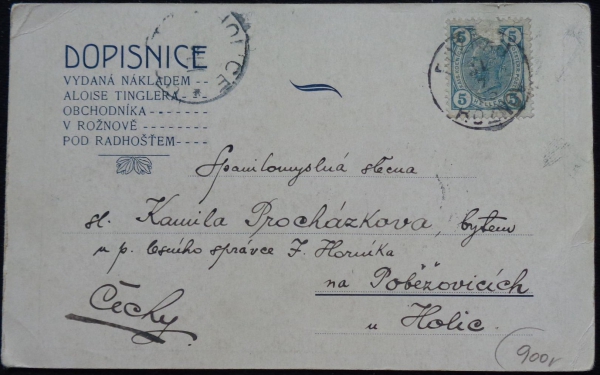 DOPISNICE
VYDANÁ NÁKLADEM
ALOISE TINGLERA,
OBCHODNÍKA
V ROŽNOVĚ
POD RADHOŠTĚM
5 5
5 5
Spanilomyslná slečna
sl. Kamila Procházkova, bytem
u p. lesního správce F. Horníka
na Poběžovicích
u Holic.
Čechy
900,